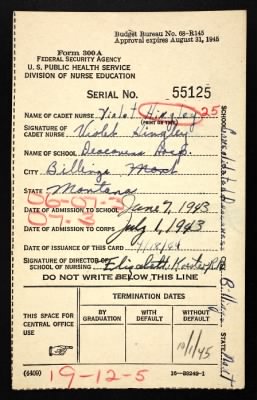 Budget Bureau No. 68-R145
Approval expires August 31, 1945
Form 300A
FEDERAL SECURITY AGENCY
U. S. PUBLIC HEALTH SERVICE
DIVISION OF NURSE EDUCATION
SERIAL NO. 55125
NAME OF CADET NURSE Violet Hingley 25
(PRINT OR TYPE)
SIGNATURE OF
CADET NURSE Violet Hingley
NAME OF SCHOOL Deaconess Hosp.
CITY Billings Mont
STATE Montana
06-07-3
07-3
DATE OF ADMISSION TO SCHOOL June 7, 1943
DATE OF ADMISSION TO CORPS July 1, 1943
DATE OF ISSUANCE OF THIS CARD 4/18/44
SIGNATURE OF DIRECTOR
OF SCHOOL OF NURSING Elizabeth R.N.
DO NOT WRITE BELOW THIS LINE
THIS SPACE FOR
CENTRAL OFFICE
USE
TERMINATION DATES
BY
GRADUATION
WITH
DEFAULT
WITHOUT
DEFAULT
10/1/45
(6409)
19-12-5
16-38249-1
SCHOOL Deaconess
CITY Billings STATE Mont